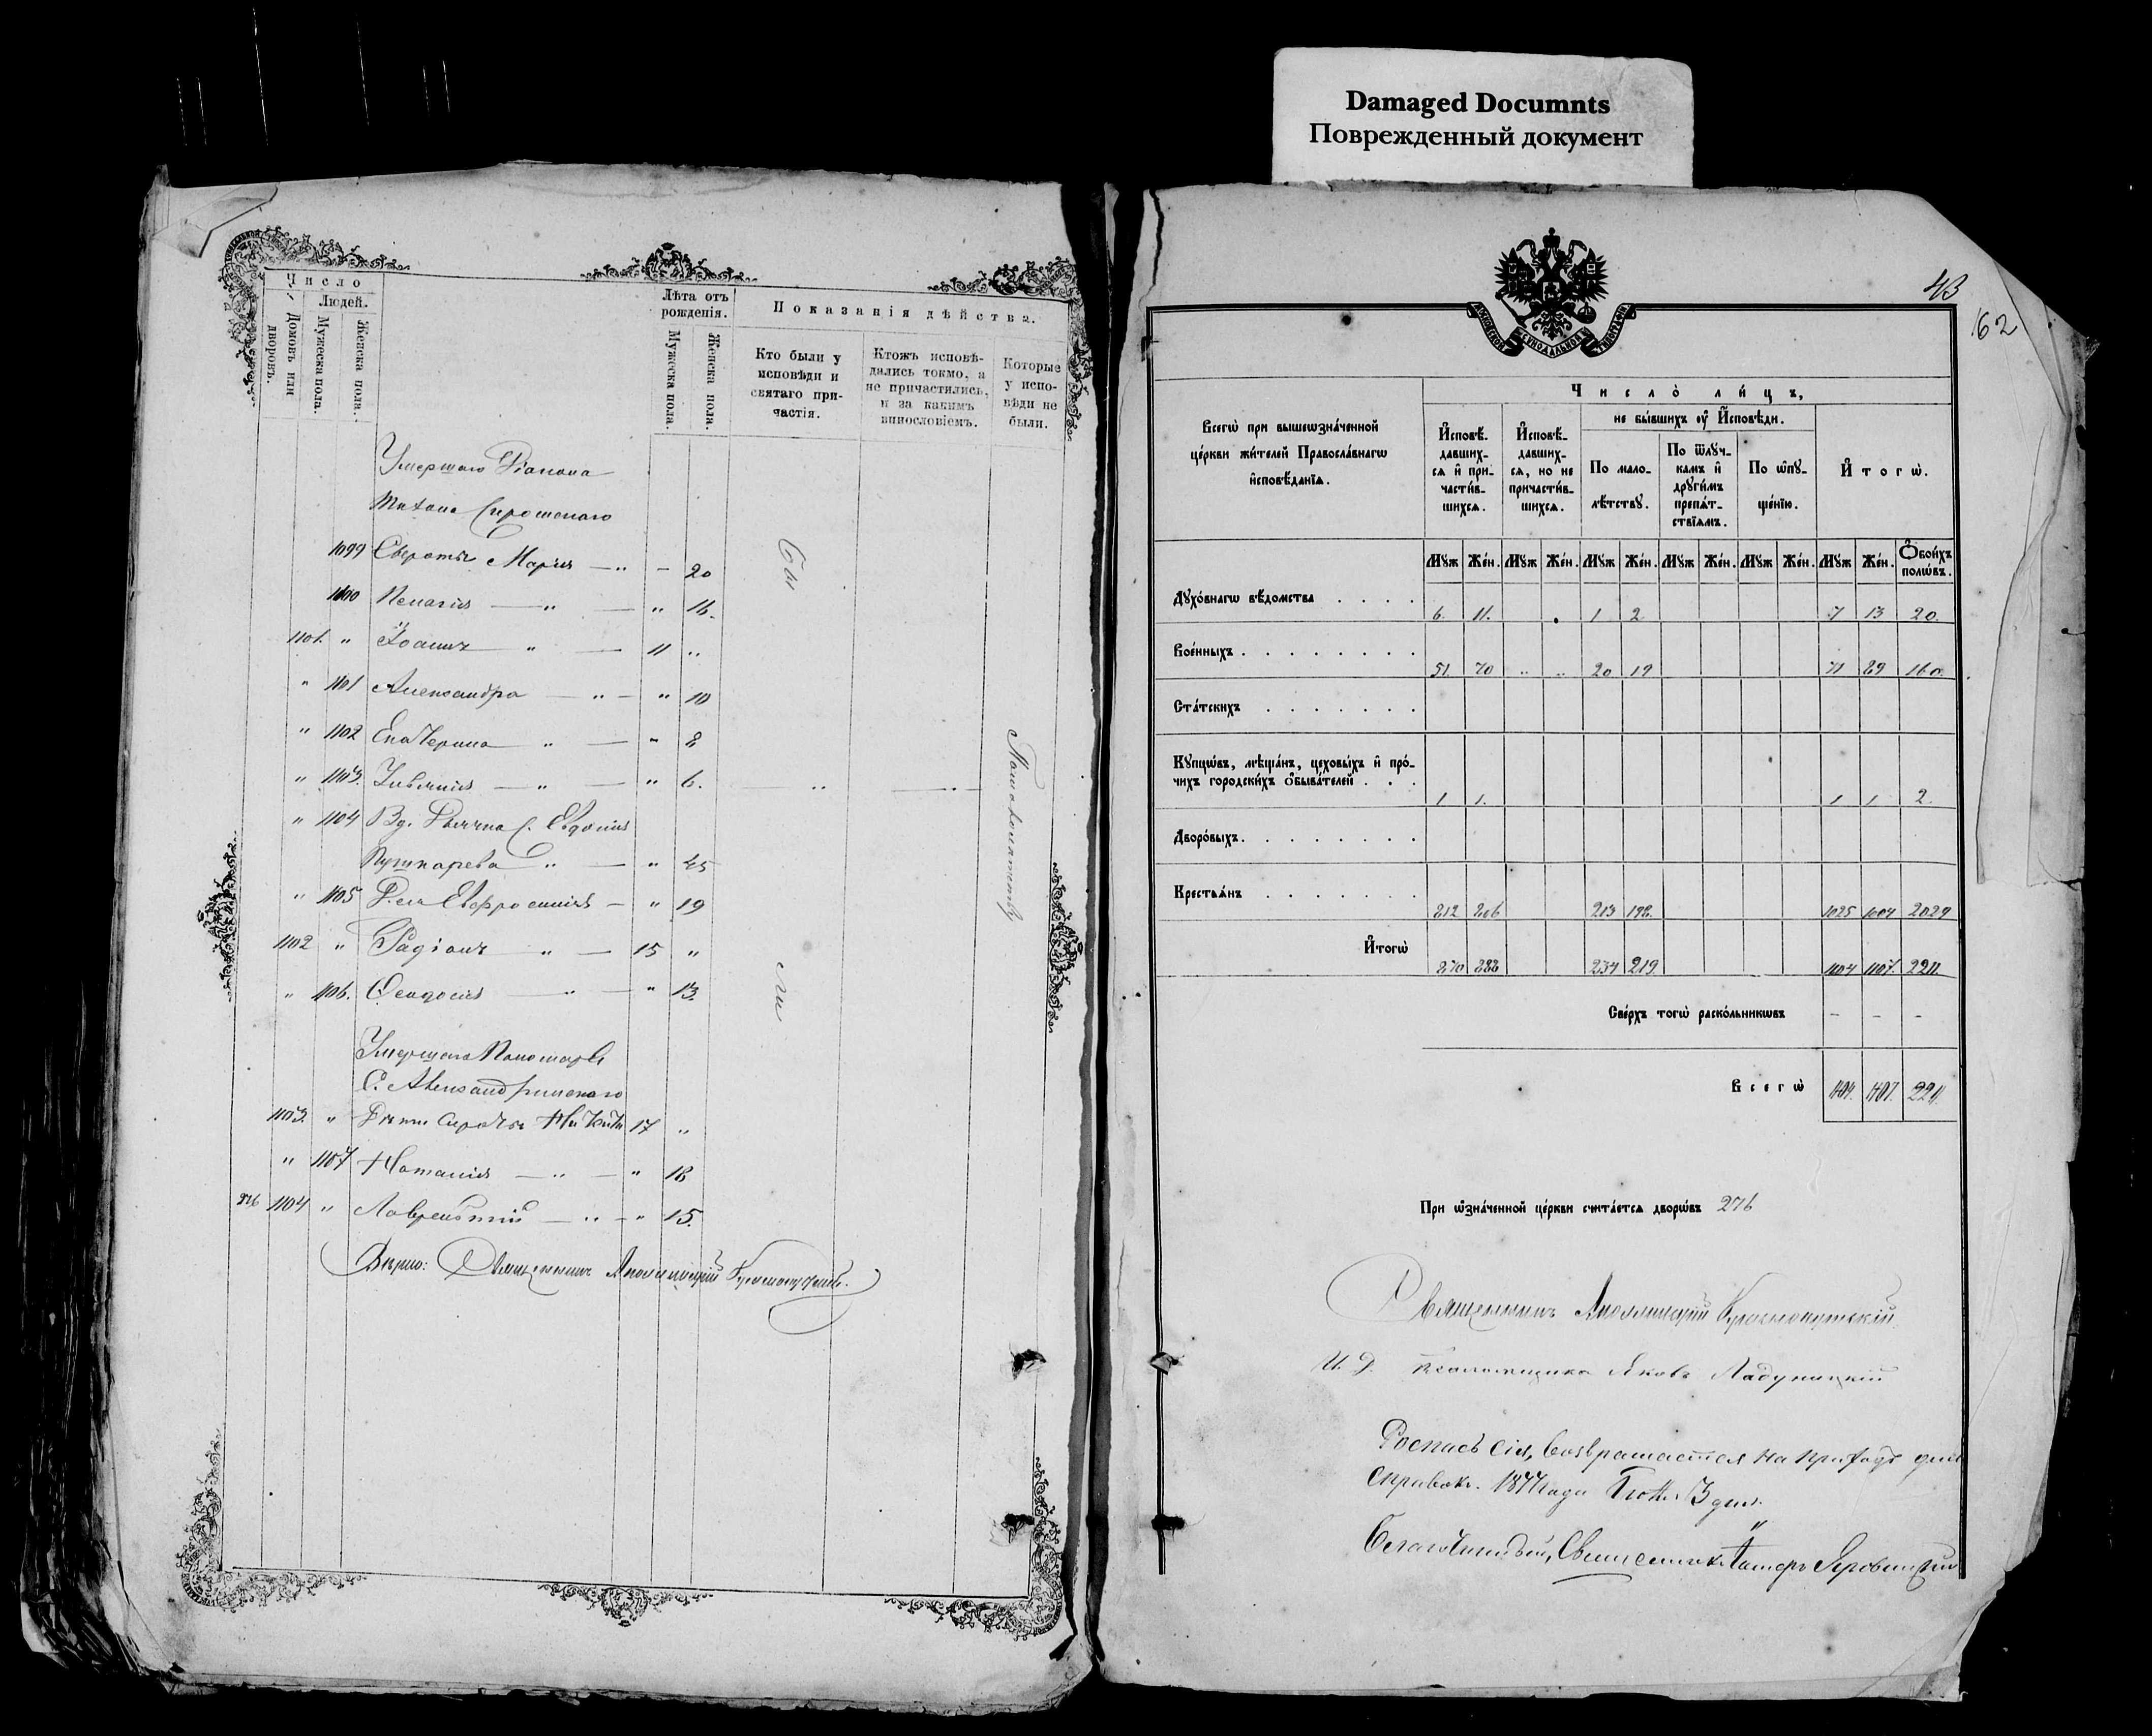 Damaged Documnts
Поврежденный документ
Число
Людей.
Домовъ или дворовъ.
Мужеска пола.
Женска пола.
Лѣта отъ рожденія.
Мужеска пола.
Женска пола.
Показанія дѣйства.
Кто были у исповѣди и святаго причастія.
Ктожъ исповѣдались токмо, а не причастились, и за какимъ винословіемъ.
Которые у исповѣди не были.
Умершаго Діакона
Сироты Марія — " — 20
1100 " — " 16.
1101. " Іоаннъ " — 11 "
" 1101 Александра — " — " 10
" 1102 Екатерина " — " 8
" 1103. — " — " 6.
" 1104 Вд. Евдокія
Пушкарева " — " 45
" 1105 Евфросинія — " 19
1102 " Радіонъ " — 15 "
" 1106. Ѳеодосія — " — " 13.
Умершаго Пономаря
С. Александринскаго
1103. " Дѣти сироты 17 "
" 1107 Наталія — " — " 18
276 1104 " Лаврентій — " — " 15.
Вѣрно: Священникъ Аполлинарій Краснокутскій.
Бы
ли
По малолѣтству
43
62
МОСКОВСКОЙ СѴНОДАЛЬНОЙ ТИПОГРАФІИ
Всегѡ при вышеѡзна́ченной це́ркви жи́телей Правосла́внагѡ и҆сповѣ́данїѧ.
Число̀ ли́цъ,
И҆сповѣ́давшихсѧ и҆ причасти́вшихсѧ.
И҆сповѣ́давшихсѧ, но не причасти́вшихсѧ.
не бы́вшихъ ᲂу҆ И҆сповѣ́ди.
По малолѣ́тствꙋ.
По ѿлꙋ́чкамъ и҆ дрꙋги́мъ препѧ́тствїѧмъ.
По ѡ҆пꙋще́нїю.
И҆тогѡ̀.
Мꙋж Же́н. Мꙋж Же́н. Мꙋж Же́н. Мꙋж Же́н. Мꙋж Же́н. Мꙋж Же́н. Ѻ҆бои́хъ полѡ́въ.
Дꙋхо́внагѡ вѣ́домства . . . . 6. 11. 1 2 7 13 20.
Вое́нныхъ . . . . . . . . 51. 70 " " 20 19 71 89 160.
Ста́тскихъ . . . . . . .
Кꙋпцѡ́въ, мѣща́нъ, цеховы́хъ и҆ про́чихъ городски́хъ ѡ҆быва́телей . . . 1 1. 1 1 2.
Дворо́выхъ . . . . . . . .
Крестьѧ́нъ . . . . . . . 812 806 213 198. 1025 1004 2029
И҆тогѡ̀ 870 888 234 219. 1104 1107. 2211.
Све́рхъ тогѡ̀ раско́льникѡвъ - - -
Всегѡ̀ 1104. 1107. 2211.
При ѡ҆зна́ченной це́ркви счита́етсѧ дворѡ́въ 276
Священникъ Аполлинарій Краснокутскій.
И. Д. псаломщика Яковъ Ладуницкій
Роспись сія, возвращается на приходъ для
справокъ. 1877 года 13 дня.
Благочинный, Священникъ